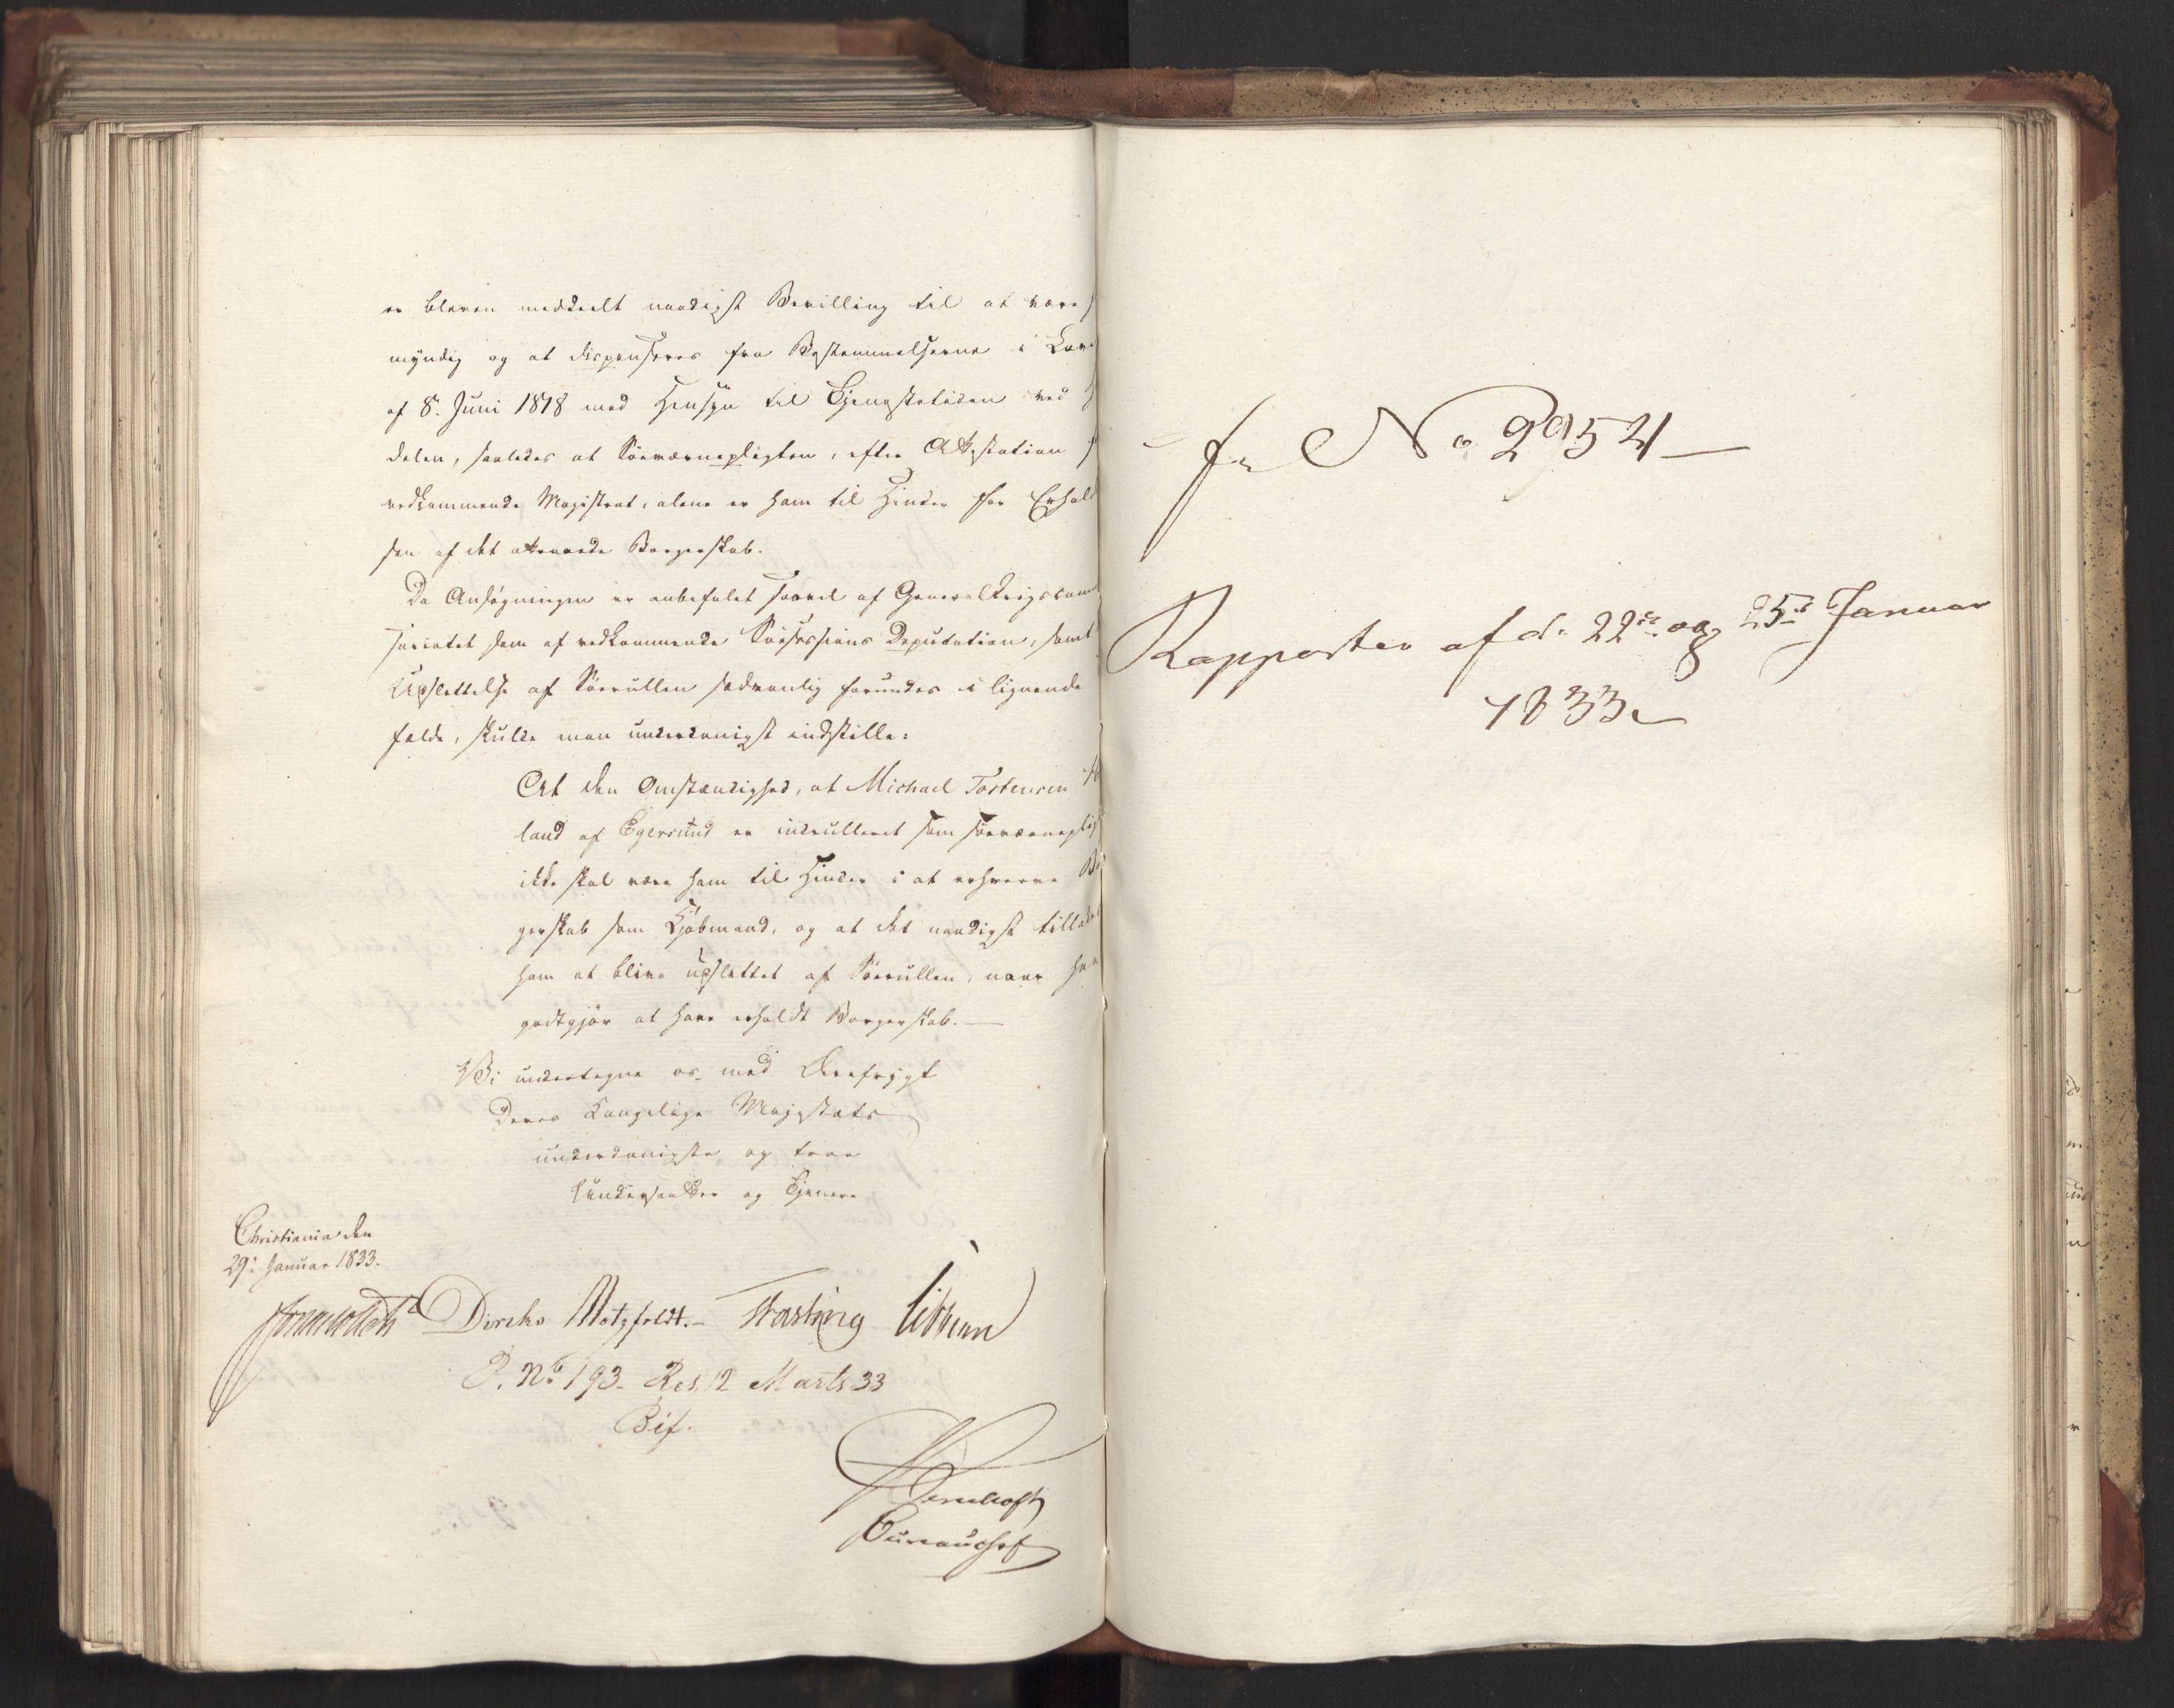 er bleven meddeelt naadigst Bevilling til at være
myndig og at dispenseres fra Bestemmelserne i Love
af 8. Juni 1818 med Hensyn til Tjenestetiden ved
delen, saaledes at Søeværnepligten, efter Attestation
vedkommende Magistrat, alene er ham til Hinder for Erhol
sen af det attraaede Borgerskab.
Da Ansøgningen er anbefalet saavel af Generalkrigscom
sariatet som af vedkommende Søesessions Deputation, samt
Udslettelse af Søerullen sædvanlig forundes i lignende
fælde, skulle man underdanigst indstille:
At den Omstændighed, at Michael Tostensen
land af Egersund er indrulleret som søeværneplig
ikke skal være ham til Hinder i at erhverve Bo
gerskab som Kjøbmand, og at det naadigst tillades
ham at blive udslettet af Søerullen, naar han
godtgjør at have erholdt Borgerskab. —
Vi undertegne os med Ærefrygt
Deres Kongelige Majestæts
underdanigste og troe
Undersaatter og Tjenere
Christiania den
29: Januar 1833.
Diriks Motzfeldt. — Fasting
P. No 193 – Res. 12 Marts 33
Bif.
Bureauchef
No 2954 —
Rapporter af d. 22de og 25de Januar
1833